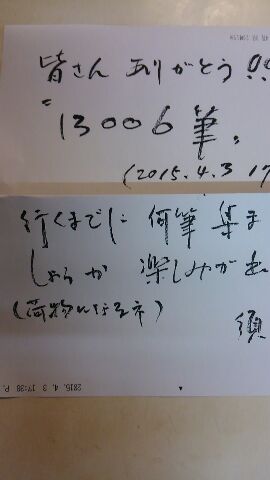 皆さん ありがとう!!
"13006筆"
(2015.4.3 17
行くまでに 何筆 集ま
しょうか 楽しみがあ
(荷物になるネ)
須
2015. 4. 3 17:38 P.